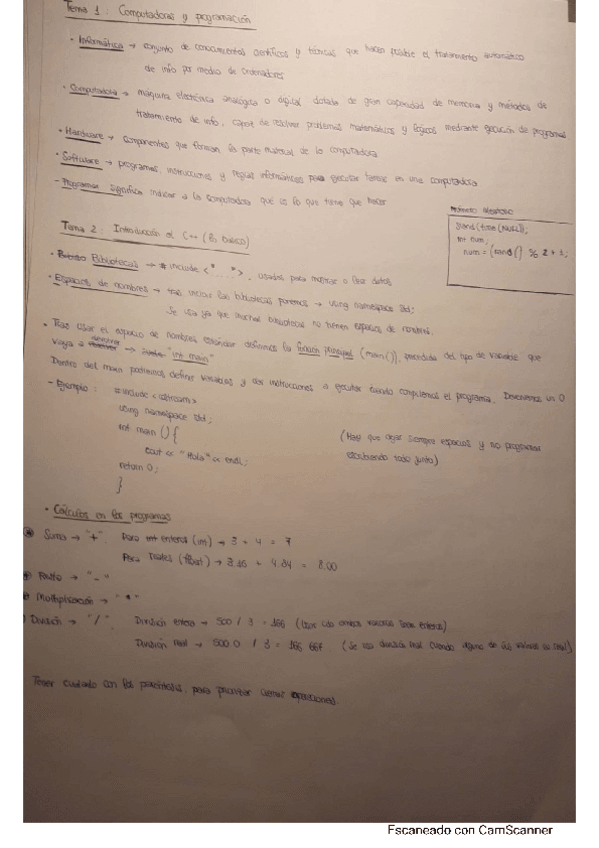 Tema 1: Computadoras y programación
· Informática → conjunto de conocimientos científicos y técnicas que hacen posible el tratamiento automático
de info por medio de ordenadores
· Computadora → máquina electrónica analógica o digital dotada de gran capacidad de memoria y métodos de
tratamiento de info, capaz de resolver problemas matemáticos y lógicos mediante ejecución de programas
· Hardware → componentes que forman la parte material de la computadora
· Software → programas, instrucciones y reglas informáticas para ejecutar tareas en una computadora
- Programar significa indicar a la computadora qué es lo que tiene que hacer
Número Aleatorio
srand(time(NULL));
int num;
num = (rand() % 2 + 1;
Tema 2: Introducción al C++ (lo básico)
· Bibliotecas → # include <"...">, usadas para mostrar o leer datos
· Espacios de nombres → tras incluir las bibliotecas ponemos → using namespace std;
Se usa ya que muchas bibliotecas no tienen espacios de nombre.
· Tras usar el espacio de nombres estándar definimos la función principal (main()), precedida del tipo de variable que
vaya a devolver → "int main"
Dentro del main podremos definir variables y dar instrucciones a ejecutar cuando compilemos el programa. Devolvemos un 0
- Ejemplo: #include <iostream>
using namespace std;
int main () {
cout << "Hola" << endl;
return 0;
}
(Hay que dejar siempre espacios y no programar
escribiendo todo junto)
· Cálculos en los programas
Suma → "+". Para enteros (int) → 3 + 4 = 7
Para reales (float) → 3.16 + 4.84 = 8.00
Resta → "-"
Multiplicación → "*"
División → "/". División entera → 500 / 3 = 166 (
División real → 500.0 / 3 = 166.667 (Se usa división real cuando alguno de los valores es real)
Tener cuidado con los paréntesis, para priorizar ciertas operaciones.
Escaneado con CamScanner